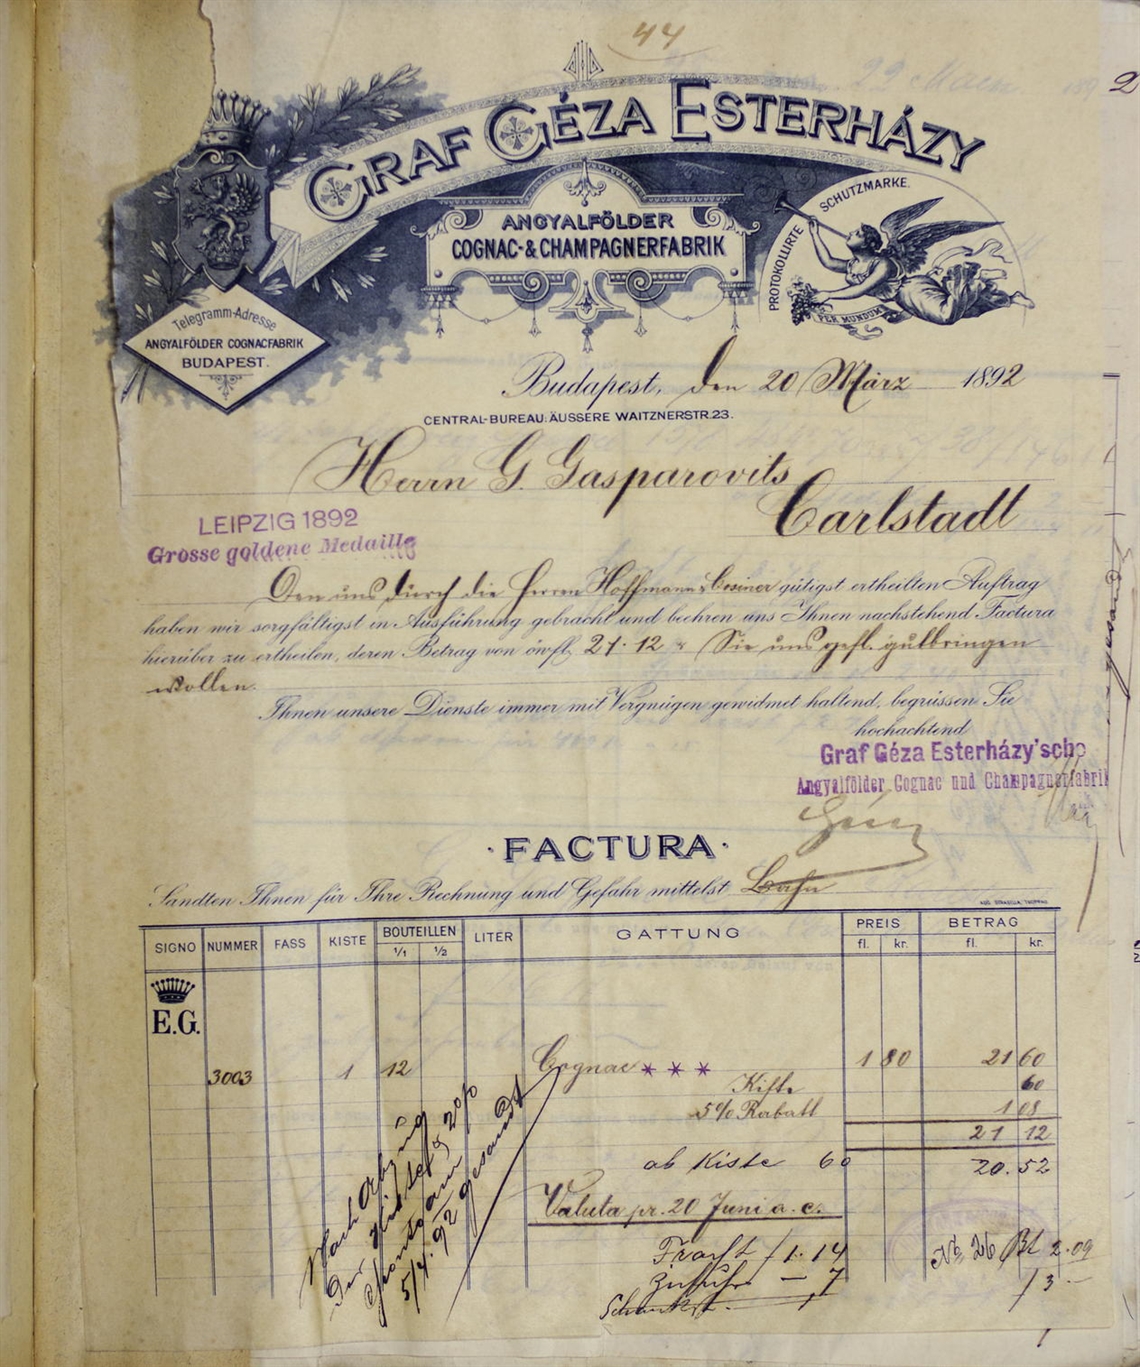 44
GRAF GÉZA ESTERHÁZY
ANGYALFÖLDER
COGNAC- & CHAMPAGNERFABRIK
PROTOKOLLIRTE SCHUTZMARKE.
PER MUNDUM
Telegramm-Adresse
ANGYALFÖLDER COGNACFABRIK
BUDAPEST.
Budapest, den 20 März 1892
CENTRAL-BUREAU: ÄUSSERE WAITZNERSTR. 23.
Herrn G. Gasparovits
Carlstadt
LEIPZIG 1892
Grosse goldene Medaille
Den uns durch die Herren Hoffmann & gütigst ertheilten Auftrag
haben wir sorgfältigst in Ausführung gebracht und beehren uns Ihnen nachstehend Factura
hierüber zu ertheilen, deren Betrag von öwfl. 21.12 Sie uns gefl. gutbringen
wollen.
Ihnen unsere Dienste immer mit Vergnügen gewidmet haltend, begrüssen Sie
hochachtend
Graf Géza Esterházy'sche
Angyalfölder Cognac und Champagnerfabrik
· FACTURA ·
Sandten Ihnen für Ihre Rechnung und Gefahr mittelst Bahn
SIGNO NUMMER FASS KISTE BOUTEILLEN 1/1 1/2 LITER GATTUNG PREIS fl. kr. BETRAG fl. kr.
E.G.
3003 1 12 Cognac * * * 1 80 21 60
Kiste 60
5% Rabatt 1 08
21 12
ab Kiste 60 20.52
Valuta pr. 20 Juni a. c.
Fracht 1.14
Zufuhr — 7
No. 26 2.09
13 —
Nach Abzug
der Kiste & 2%
5/4.92 gesandt